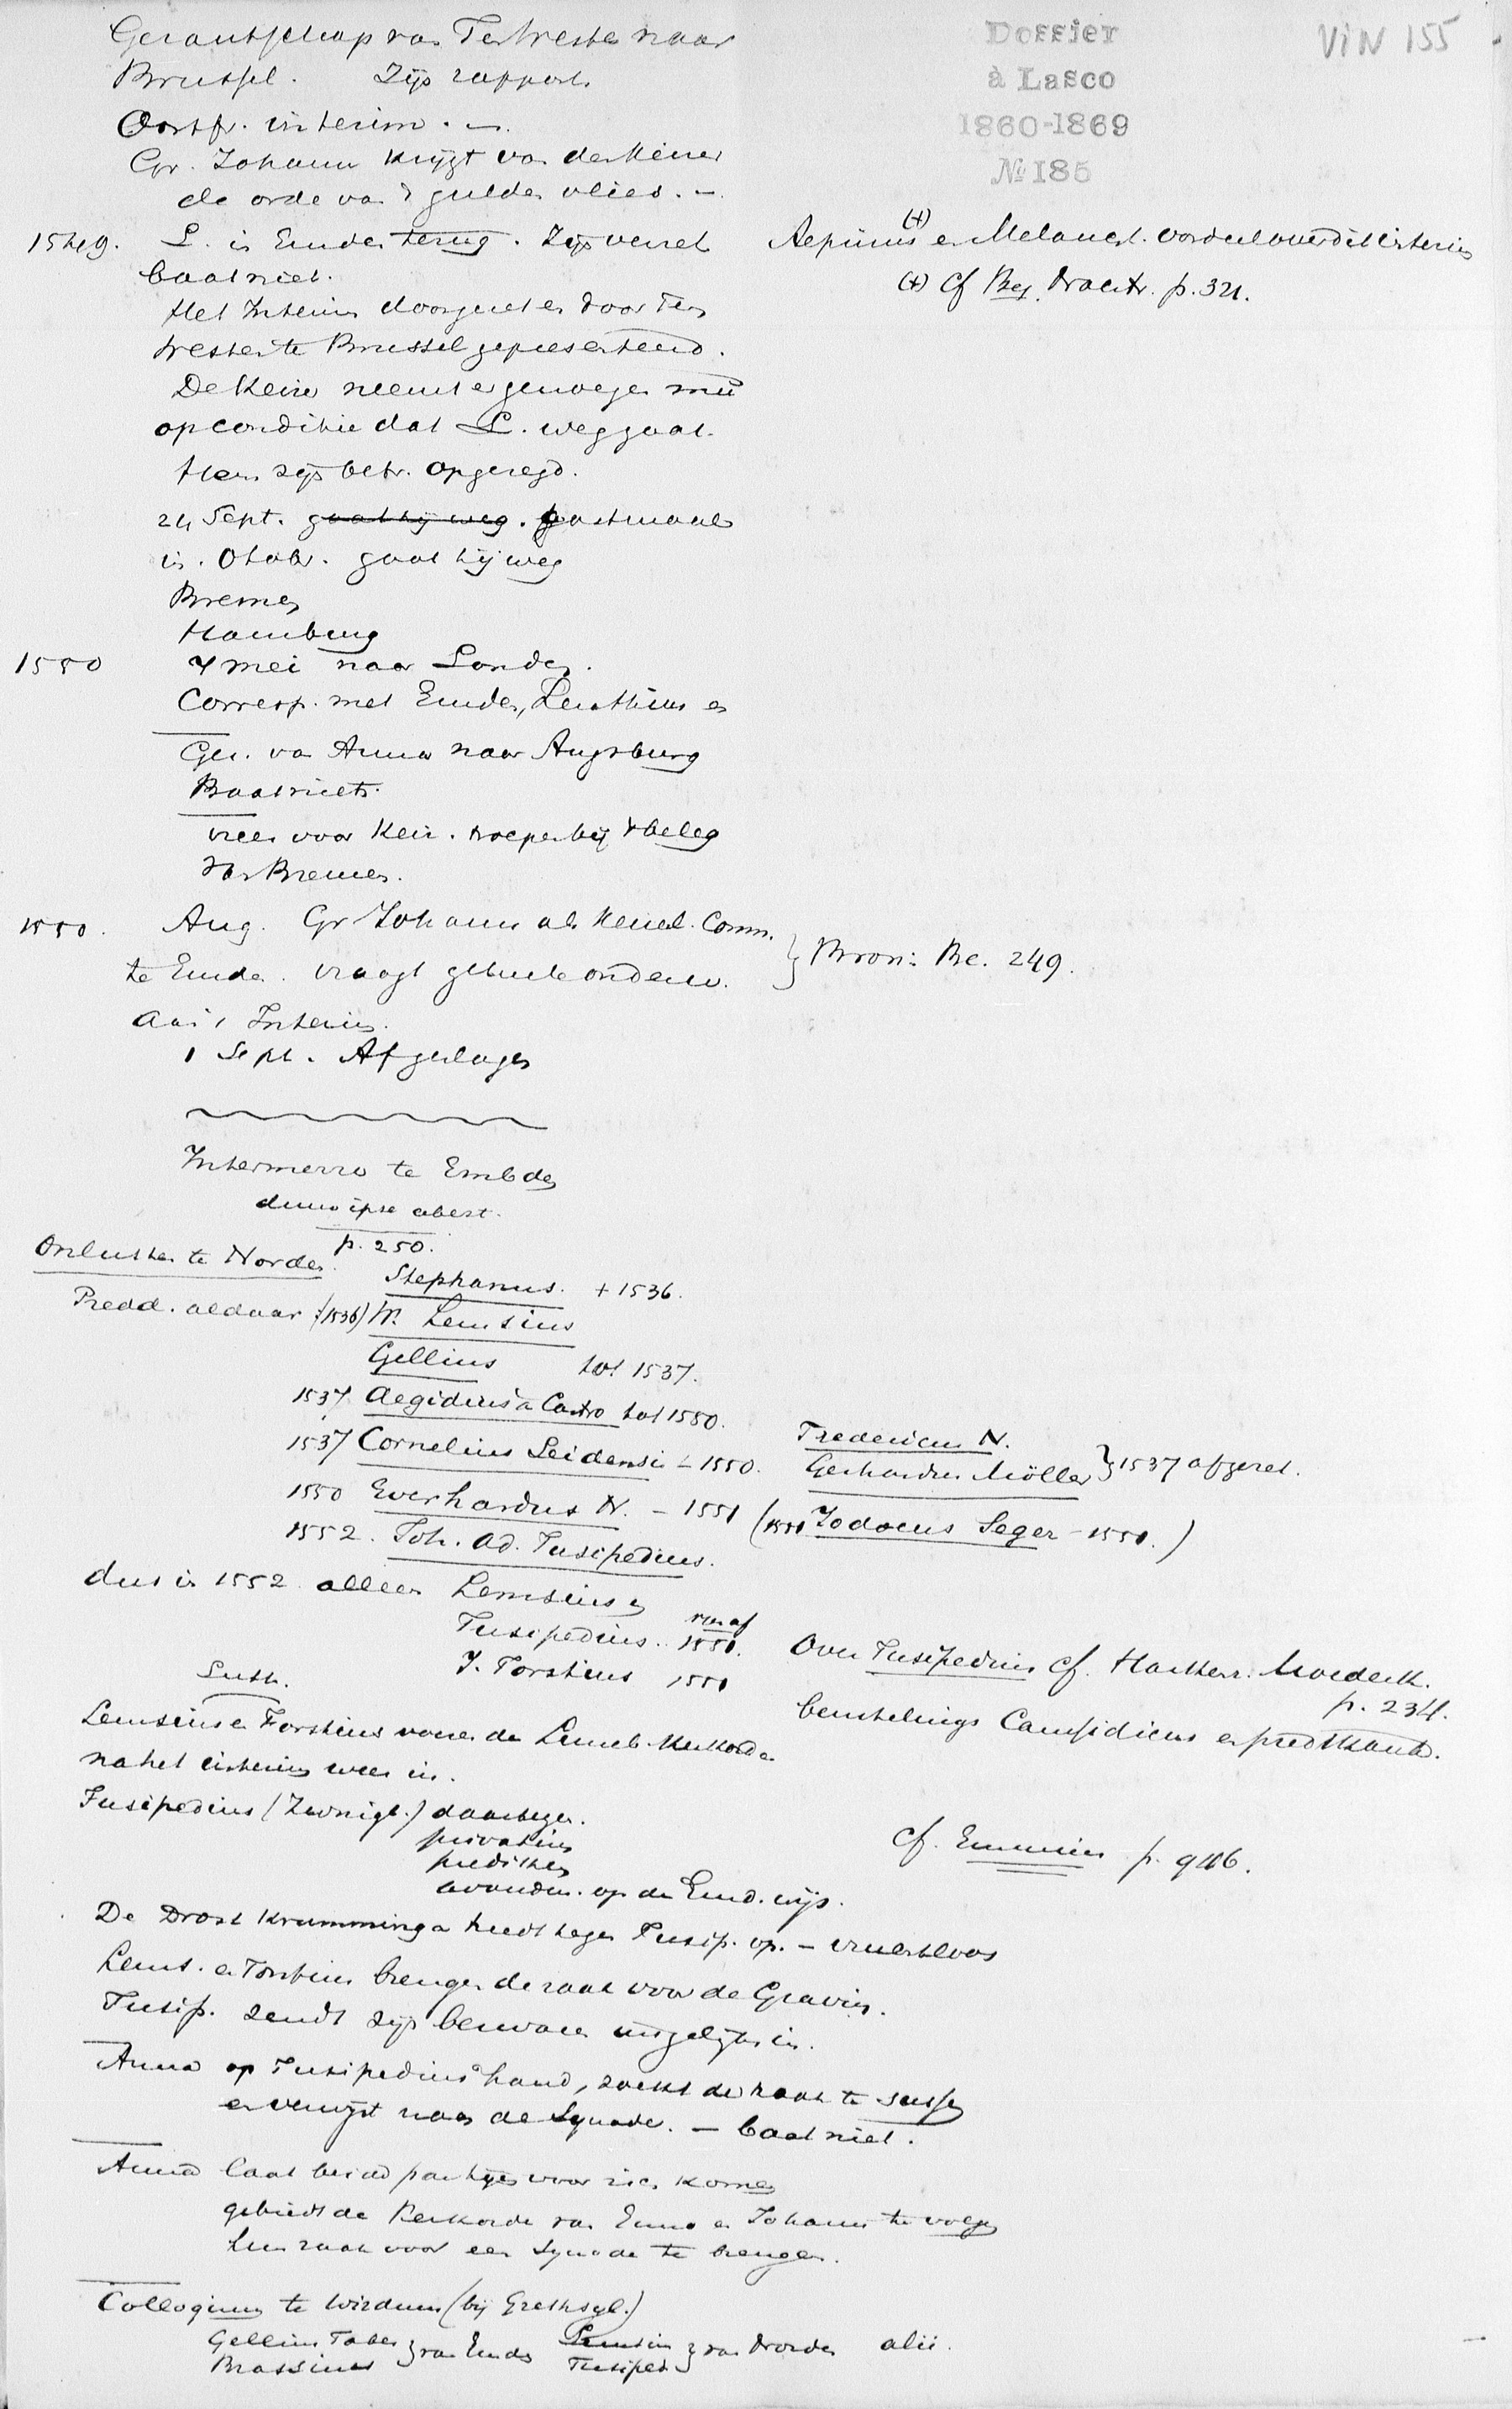 Gezantschap van Ter Westen naar
Brussel. Zijn rapport.
Oostfr. interim. —
Gr. Johann krijgt van den keizer
de orde van 't gulden vlies. —
Dossier
à Lasco
1860-1869
№ 185
VIN 155
1549. L. in Emden terug. Zijn verzet
baat niet.
Aepinus (+) en Melancht. oordeel over dit interim
(+) Cf Bes. Tractr. p. 321.
Het Interim doorgezet en door Ter
Westen te Brussel gepresenteerd.
De Keizer neemt er genoegen mee
op conditie dat L. weggaat.
Hem zijn betr. opgezegd.
24 Sept. gaat hij weg. gastmaal
in Octobr. gaat hij weg
Bremen
Hamburg
1550 7 mei naar Londen.
Corresp. met Emden, Lenthius en
Gez. van Anna naar Augsburg
Baat niets.
vrees voor Keiz. troepen bij 't beleg
van Bremen.
1550. Aug. Gr Johann als Keizerl. Comm.
te Emden. vraagt gehele onderw.
aan 't Interim.
} Bron: Be. 249.
1 Sept. Afgeslagen
Intermezzo te Embden
dum ipse abest.
p. 250.
Onlusten te Norden.
Stephanus. + 1536.
Predd. aldaar (1536) W. Lemsius
Gellius tot 1537.
1537 Aegidius a Castro tot 1550.
1537 Cornelius Leidensis – 1550.
Fredericus N.
Gerhardus Möller } 1537 afgezet.
1550 Everhardus N. – 1551 (1551 Jodocus Seger – 1551.)
1552. Joh. Ad. Fusipedius.
dus in 1552 alleen Lemsius en
Fusipedius. vanaf 1551.
J. Forstius 1551
Over Fusipedius cf. Harkenr. Moederk.
p. 234.
beurtelings Causidicus en predikant.
Luth.
Lemsius en Forstius voeren de Luneb. Kerkorde
na het interim weer in.
Fusipedius (Zwingl.) daartegen.
privatim
prediken
avondm. op de Emd. wijs.
cf. Emmius p. 946.
De Drost Krumminga treedt tegen Fusip. op. – vruchteloos
Lems. en Forstius brengen de zaak voor de Gravin.
Fusip. zendt zijn bezwaren insgelijks in.
Anna op Fusipedius' hand, zoekt de zaak te sussen
en verwijst naar de Synode. – baat niet.
Anna laat beide partijen voor zich komen
gebiedt de Kerkorde van Enno en Johann te volgen
hun zaak voor een Synode te brengen.
Colloqium te Wirdum (bij Greetsyl.)
Gellius Faber
Brassius } van Emden Lemsius
Fusiped. } van Norden alii.